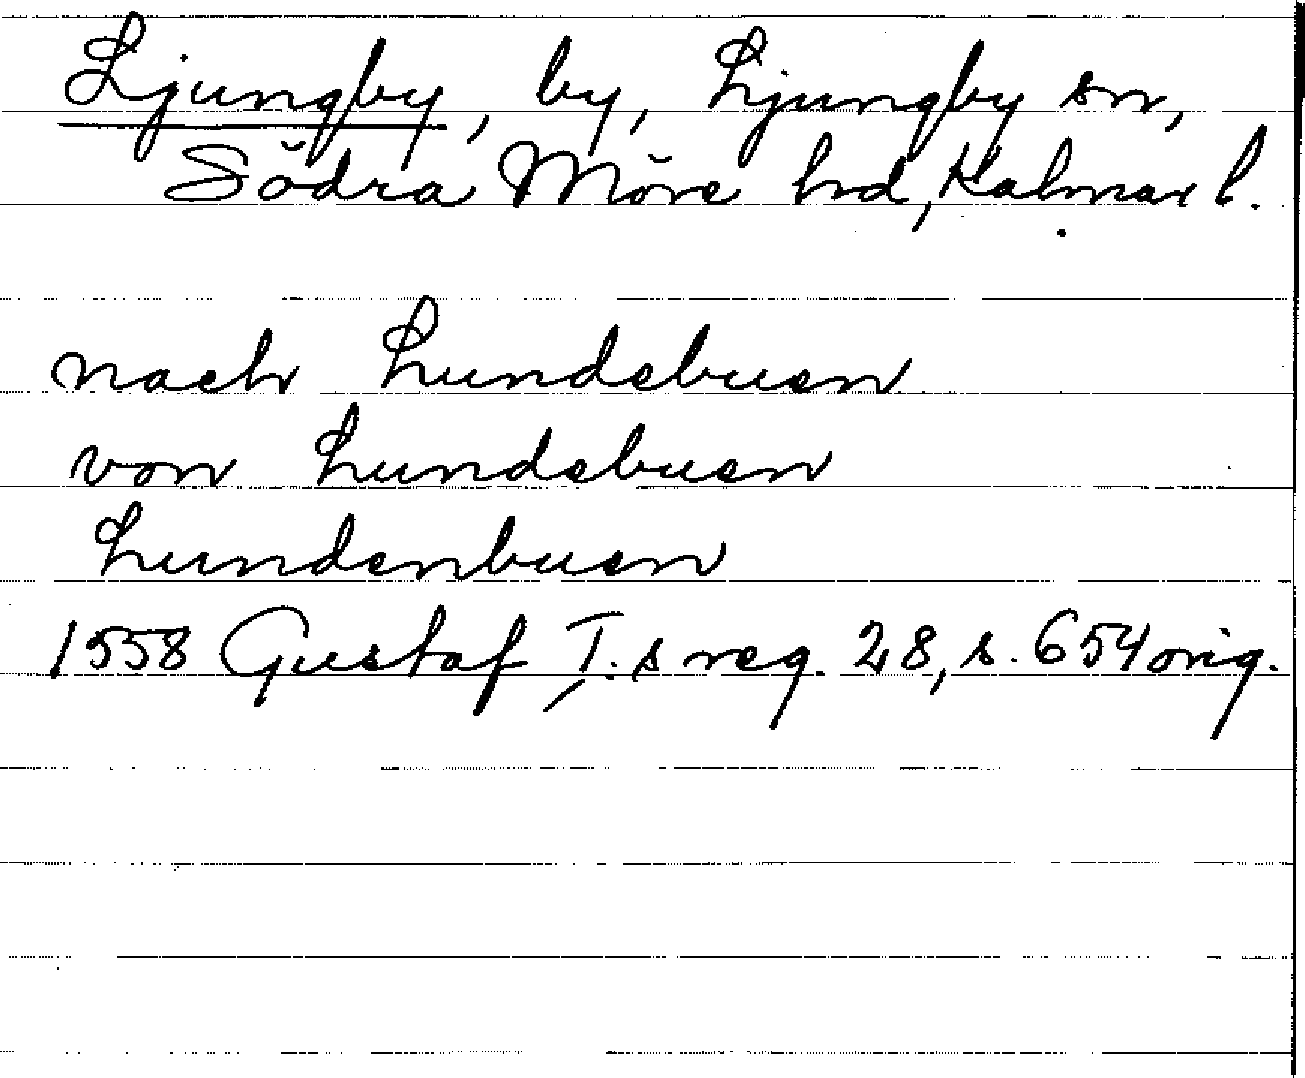 Ljungby, by, Ljungby sn,
Södra Möre hd, Kalmar l.
nach Lundebuen
von Lundebuen
Lundenbuen
1558 Gustaf I.s reg. 28, s. 654 orig.